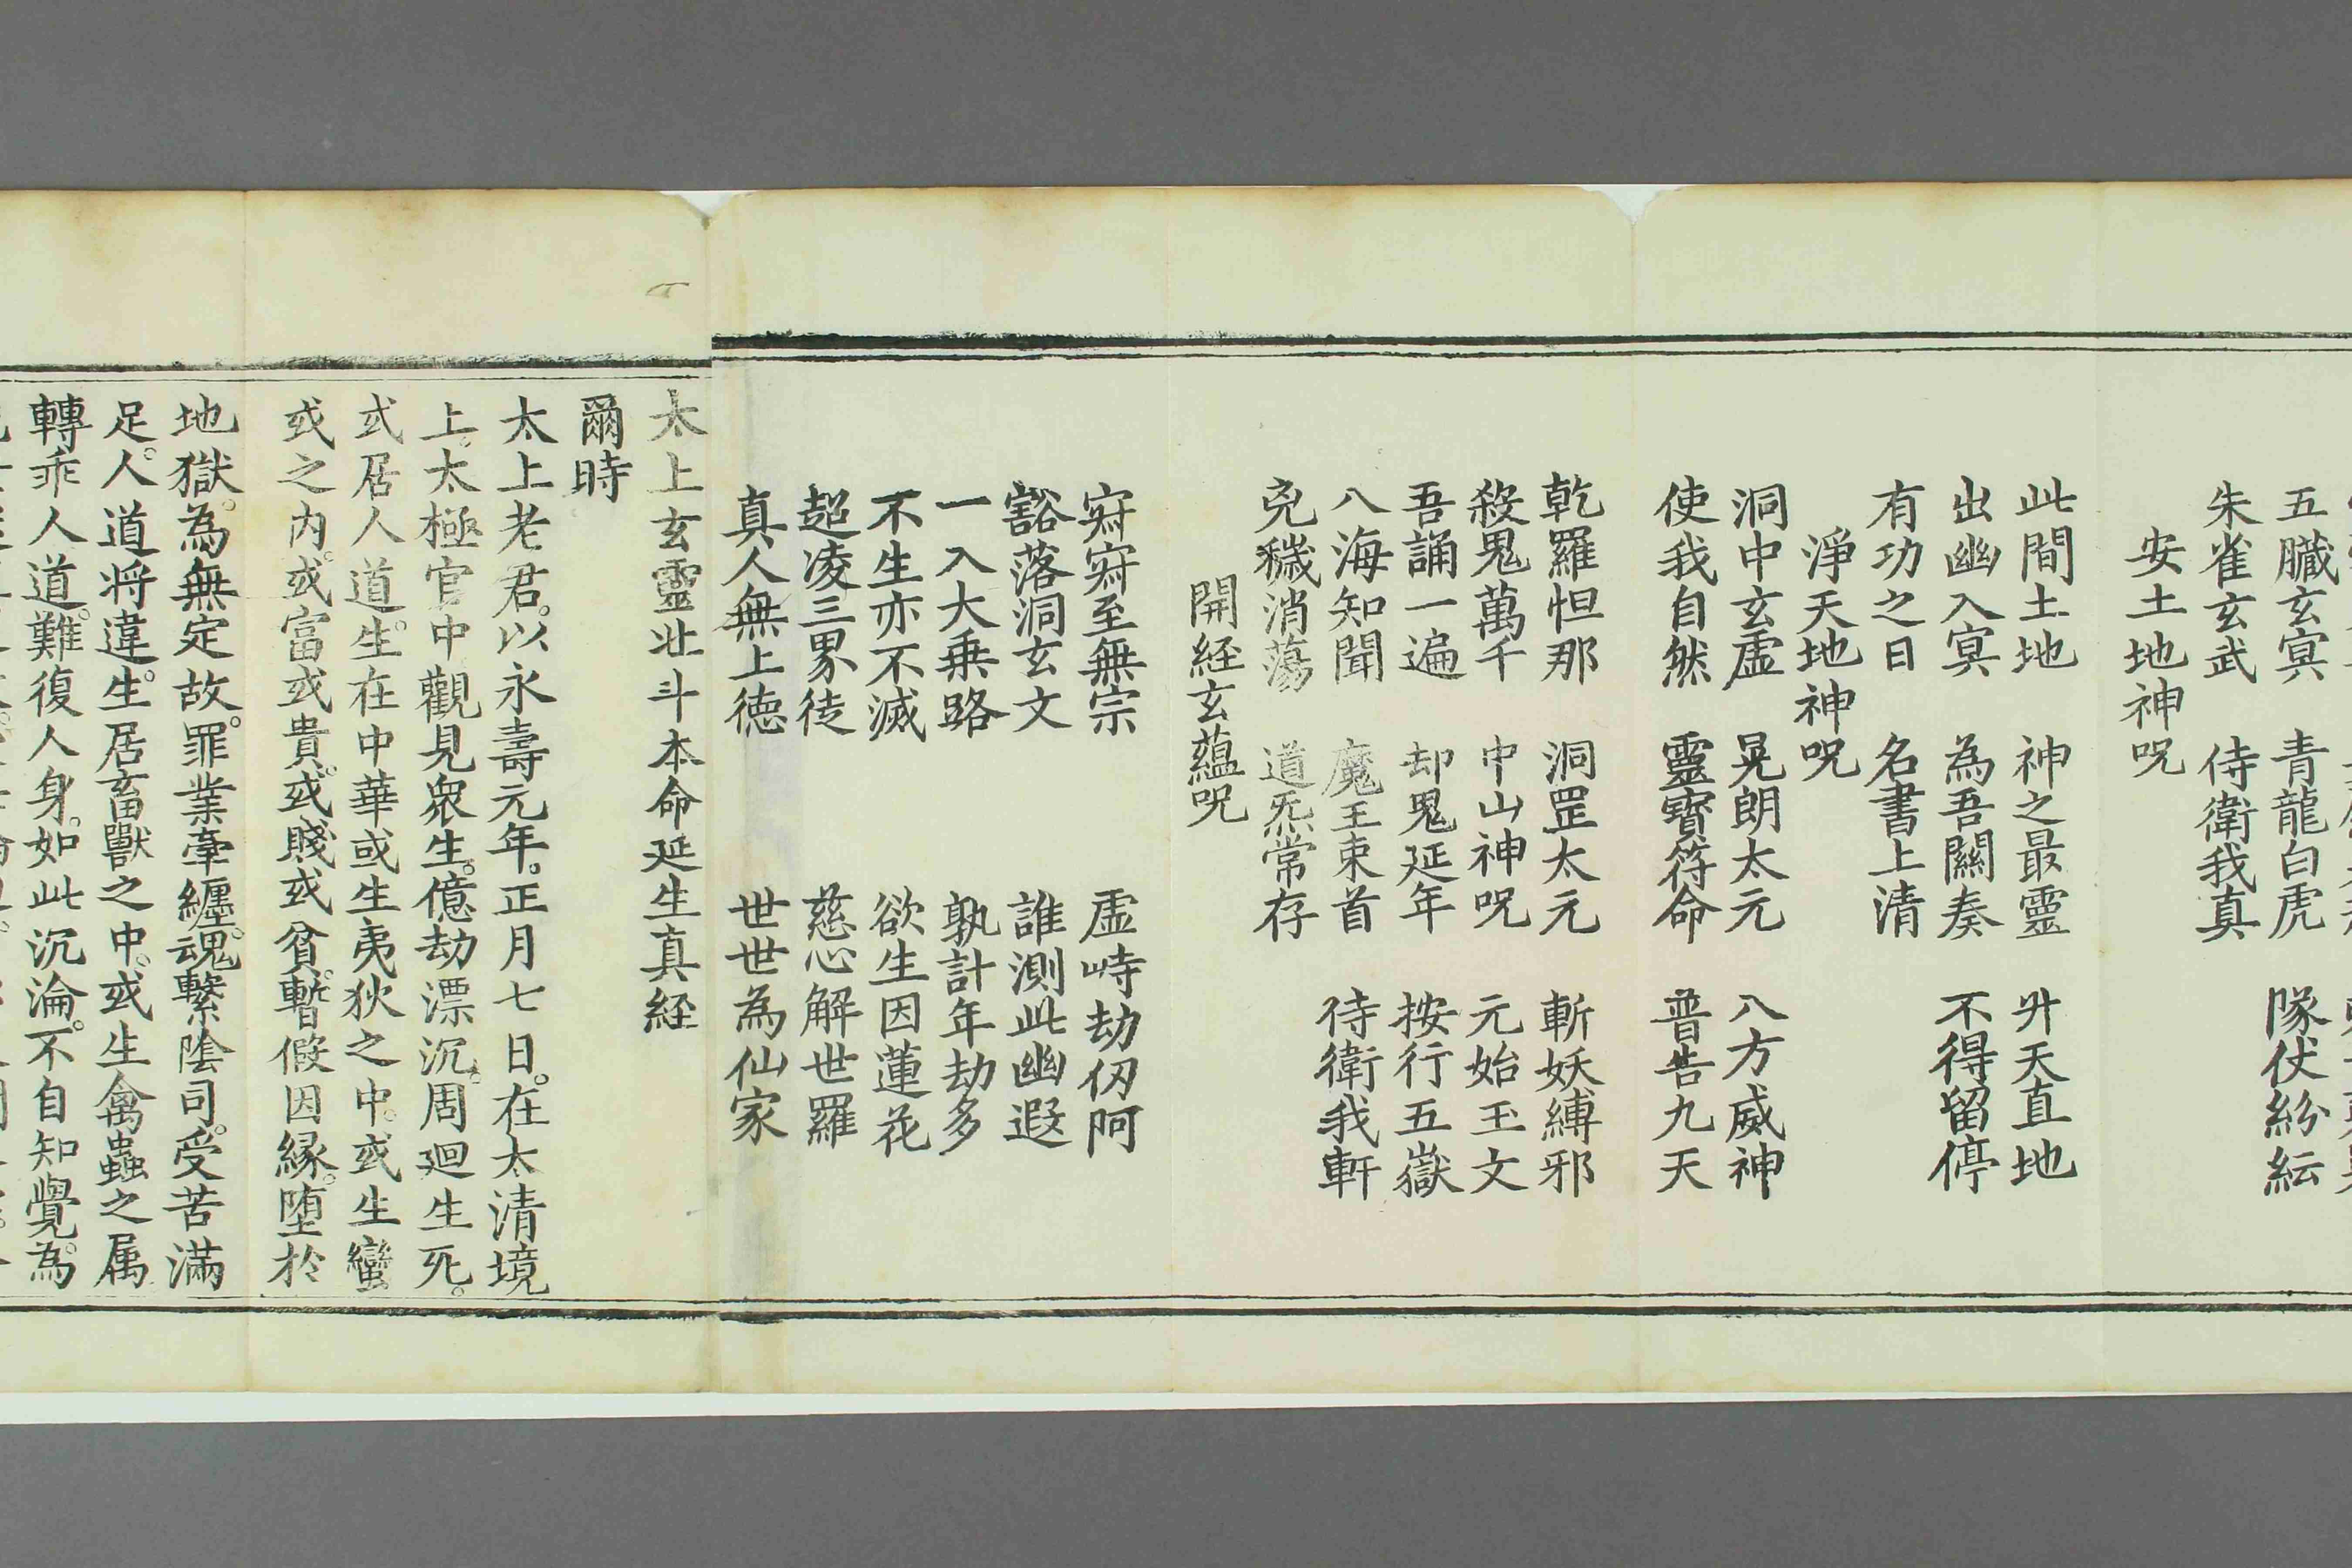 五臟玄冥 青龍白虎 隊仗紛紜
朱雀玄武 侍衛我真
安土地神呪
此間土地 神之最靈 升天直地
出幽入冥 為吾關奏 不得留停
有功之日 名書上清
淨天地神呪
洞中玄虛 晃朗太元 八方威神
使我自然 靈寶符命 普告九天
乾羅怛那 洞罡太元 斬妖縛邪
殺鬼萬千 中山神呪 元始玉文
吾誦一遍 却鬼延年 按行五嶽
八海知聞 魔王束首 侍衛我軒
兇穢消蕩 道炁常存
開経玄蘊呪
㝥㝥至無宗 虛峙劫仞阿
豁落洞玄文 誰測此幽遐
一入大乗路 孰計年劫多
不生亦不滅 欲生因蓮花
超凌三界徒 慈心解世羅
真人無上德 世世為仙家
太上玄靈北斗本命延生真経
爾時
太上老君。以永壽元年。正月七日。在太清境
上。太極官中觀見衆生。億劫漂沉。周廻生死。
或居人道。生在中華或生夷狄之中。或生蠻
或之内。或富或貴。或賤或貧。暫假因縁。墮於
地獄。為無定故。罪業牽纏。魂繫陰司。受苦滿
足。人道将違。生居畜獸之中。或生禽蟲之属
轉乖人道。難復人身。如此沉淪。不自知覺。為